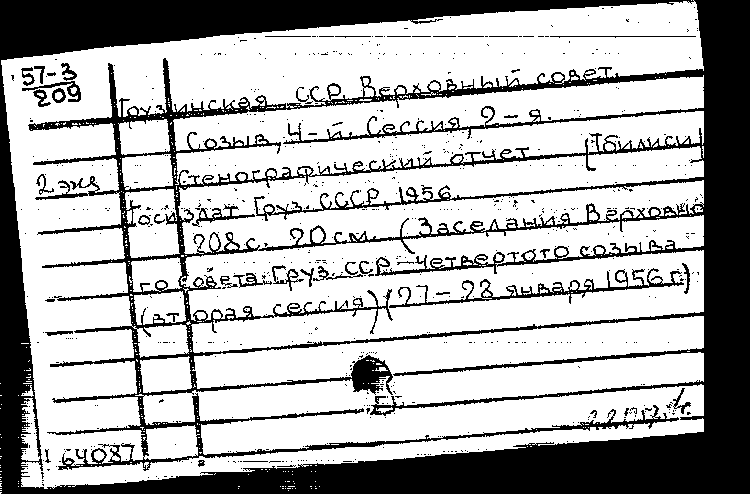 57-3
209
Грузинская ССР. Верховный совет.
Созыв, 4-й. Сессия, 2-я.
2 экз Стенографический отчет [Тбилиси]
Госиздат Груз. СССР, 1956.
208 с. 20 см. (Заседания Верховно
го совета Груз. ССР четвертого созыва
(вторая сессия) (27-28 января 1956 г.)
64087